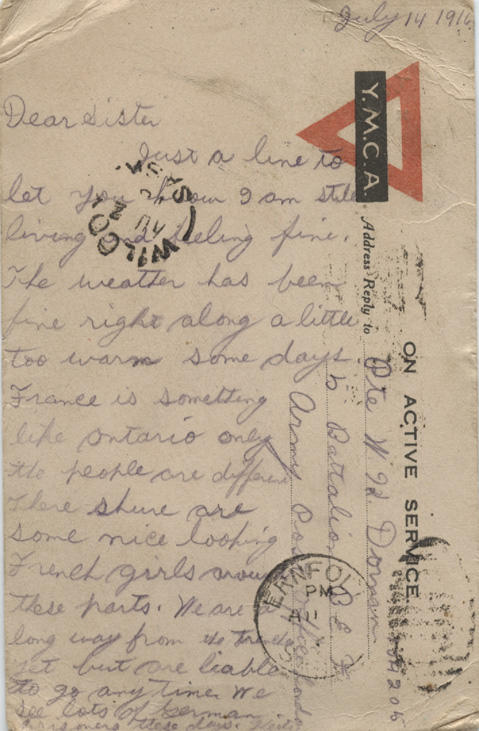 July 14 1916
Dear Sister
Just a line to
let you know I am still
living and feeling fine.
The weather has been
fine right along a little
too warm some days.
France is something
like ontario only
the people are different
There shure are
some nice looking
French girls around
these parts. We are a
long way from the trenches
yet but are liable
to go any time. We
see lots of German
prisoners these days.
Y.M.C.A.
ON ACTIVE SERVICE
Address Reply to
Pte W H Dorman
5 Battalion
Army Post Office London
WILCOX
SASK
AU
PM